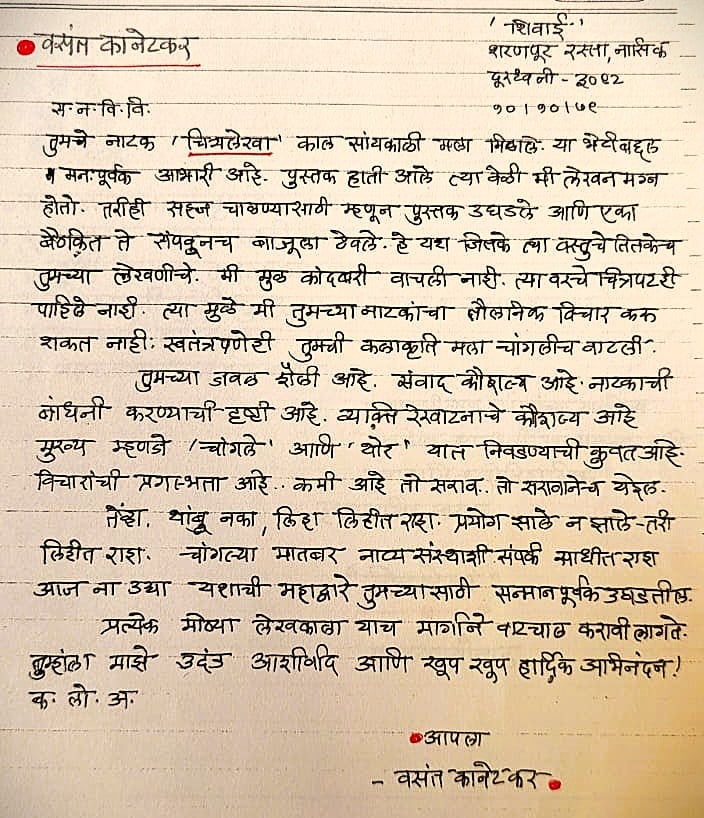 'शिवाई'
वसंत कानेटकर
शरणपूर रस्ता, नासिक
दूरध्वनी - ३०१२
१०।१०।७९
स. न. वि. वि.
तुमचे नाटक 'चित्रलेखा' काल सांयकाळी मला मिळाले. या भेटीबद्दल
मनःपूर्वक आभारी आहे. पुस्तक हाती आले त्या वेळी मी लेखन मग्न
होतो. तरीही सहज चाळण्यासाठी म्हणून पुस्तक उघडले आणि एका
बैठकित ते संपवूनच बाजूला ठेवले. हे यश जितके त्या वस्तुचे तितकेच
तुमच्या लेखणीचे. मी मुळ कादंबरी वाचली नाही. त्या वरचे चित्रपटही
पाहिले नाही. त्या मुळे मी तुमच्या नाटकांचा तौलानिक विचार करू
शकत नाही: स्वतंत्रपणेही तुमची कलाकृति मला चांगलीच वाटली.
तुमच्या जवळ शैली आहे. संवाद कौशल्य आहे. नाटकाची
बांधनी करण्याची दृष्टी आहे. व्यक्ति रेखाटनाचे कौशल्य आहे
मुख्य म्हणजे 'चांगले' आणि 'थोर' यात निवडण्याची कुवत आहे.
विचारांची प्रगल्भता आहे.. कमी आहे तो सराव.. तो सरावानेच येईल.
तेंव्हा, थांबू नका, लिहा लिहीत राहा. प्रयोग झाले न झाले-तरी
लिहीत राहा. चांगल्या मातबर नाट्य संस्थाशी संपर्क साधीत राहा
आज ना उद्या यशाची महाद्वारे तुमच्यासाठी सन्मानपूर्वक उघडतील.
प्रत्येक मोठ्या लेखकाला याच मार्गाने वाटचाल करावी लागते.
तुम्हांला माझे उदंड आशीर्वाद आणि खूप खूप हार्दिक अभिनंदन!
क. लो. अ.
आपला
- वसंत कानेटकर